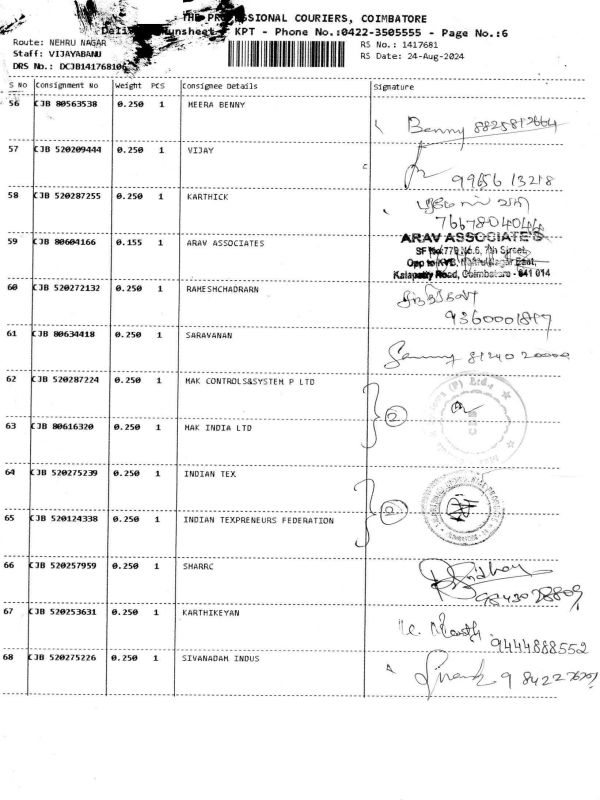 THE PROFESSIONAL COURIERS, COIMBATORE
Delivery Runsheet KPT - Phone No.:0422-3505555 - Page No.:6
Route: NEHRU NAGAR
RS No.: 1417681
Staff: VIJAYABANU
RS Date: 24-Aug-2024
DRS No.: DCJB141768106
S No Consignment No Weight PCS Consignee Details Signature
56 CJB 80563538 0.250 1 MEERA BENNY
Benny 8825812664
57 CJB 520209444 0.250 1 VIJAY
9965613218
58 CJB 520287255 0.250 1 KARTHICK
7667804044
59 CJB 80604166 0.155 1 ARAV ASSOCIATES
ARAV ASSOCIATES
Kalapatty Road, Coimbatore - 641 014
60 CJB 520272132 0.250 1 RAMESHCHADRARN
9360001817
61 CJB 80634418 0.250 1 SARAVANAN
62 CJB 520287224 0.250 1 MAK CONTROLS&SYSTEM P LTD
2
63 CJB 80616320 0.250 1 MAK INDIA LTD
64 CJB 520275239 0.250 1 INDIAN TEX
2
65 CJB 520124338 0.250 1 INDIAN TEXPRENEURS FEDERATION
66 CJB 520257959 0.250 1 SHARRC
67 CJB 520253631 0.250 1 KARTHIKEYAN
9444888552
68 CJB 520275226 0.250 1 SIVANADAM INDUS